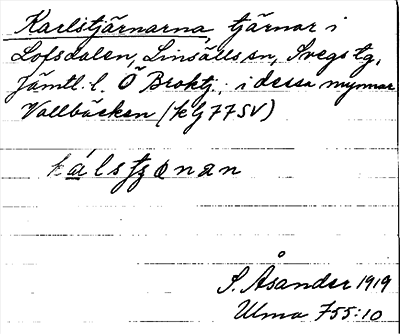 Karlstjärnarna, tjärnar i
Lofsdalen, Linsälls sn, Svegs tg,
Jämtl. l. Ö Broktj.; i dessa mynnar
Vallbäcken (kg 77 SV)
kálstjənan
S. Åsander 1919
Ulma 755:10